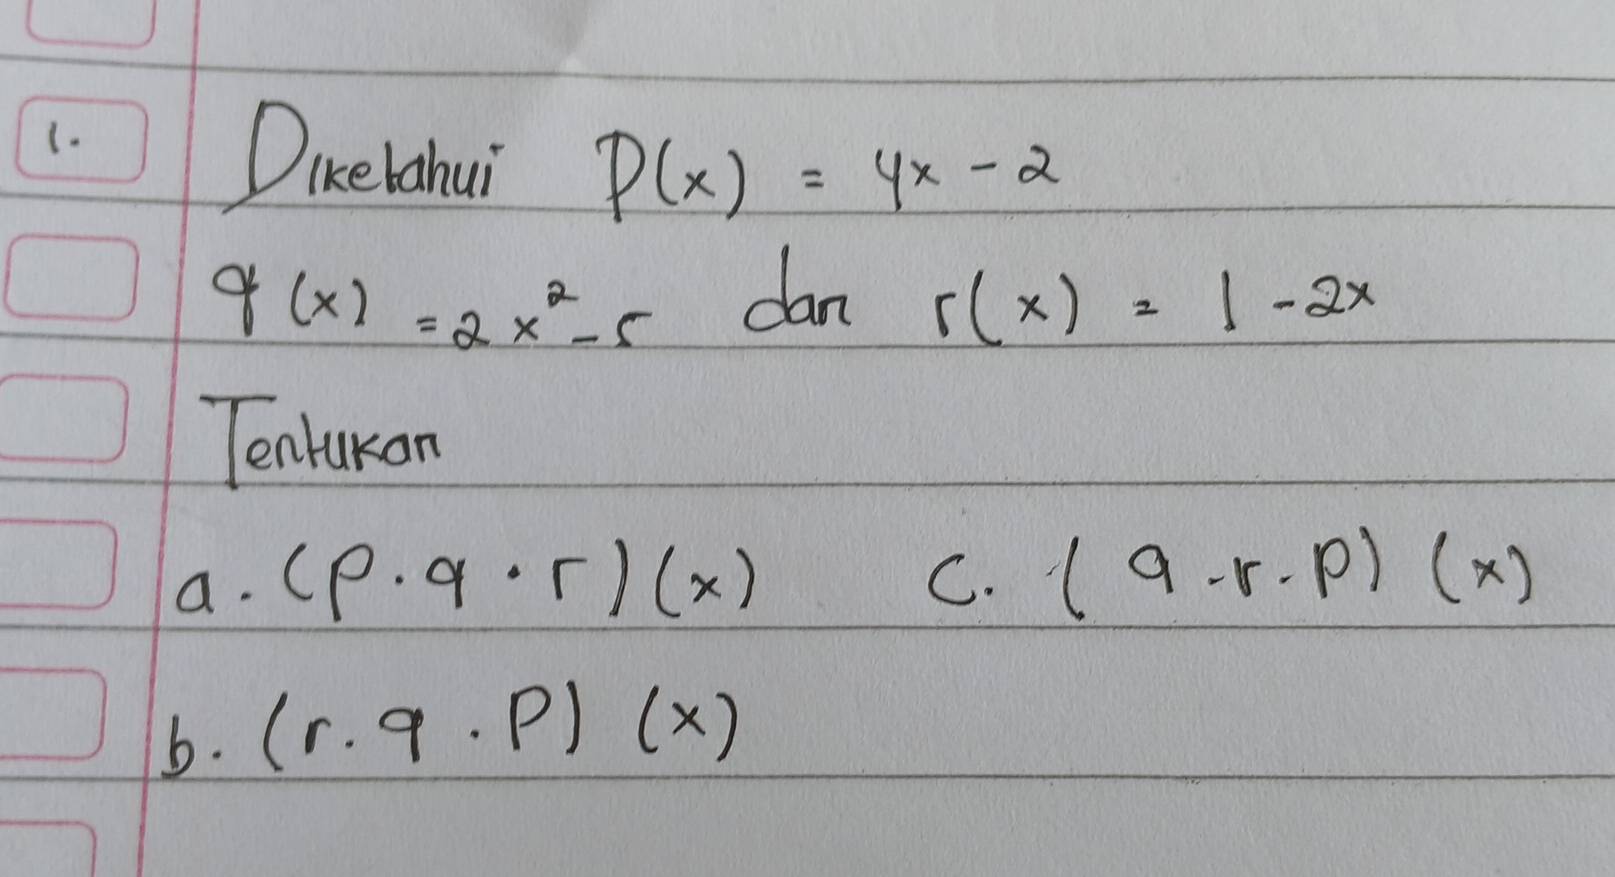 1. Diketahui P(x) = 4x - 2
q(x) = 2x² - 5 dan r(x) = 1 - 2x
Tentukan
a. (p . q . r) (x) c. (q . r . p) (x)
b. (r . q . p) (x)